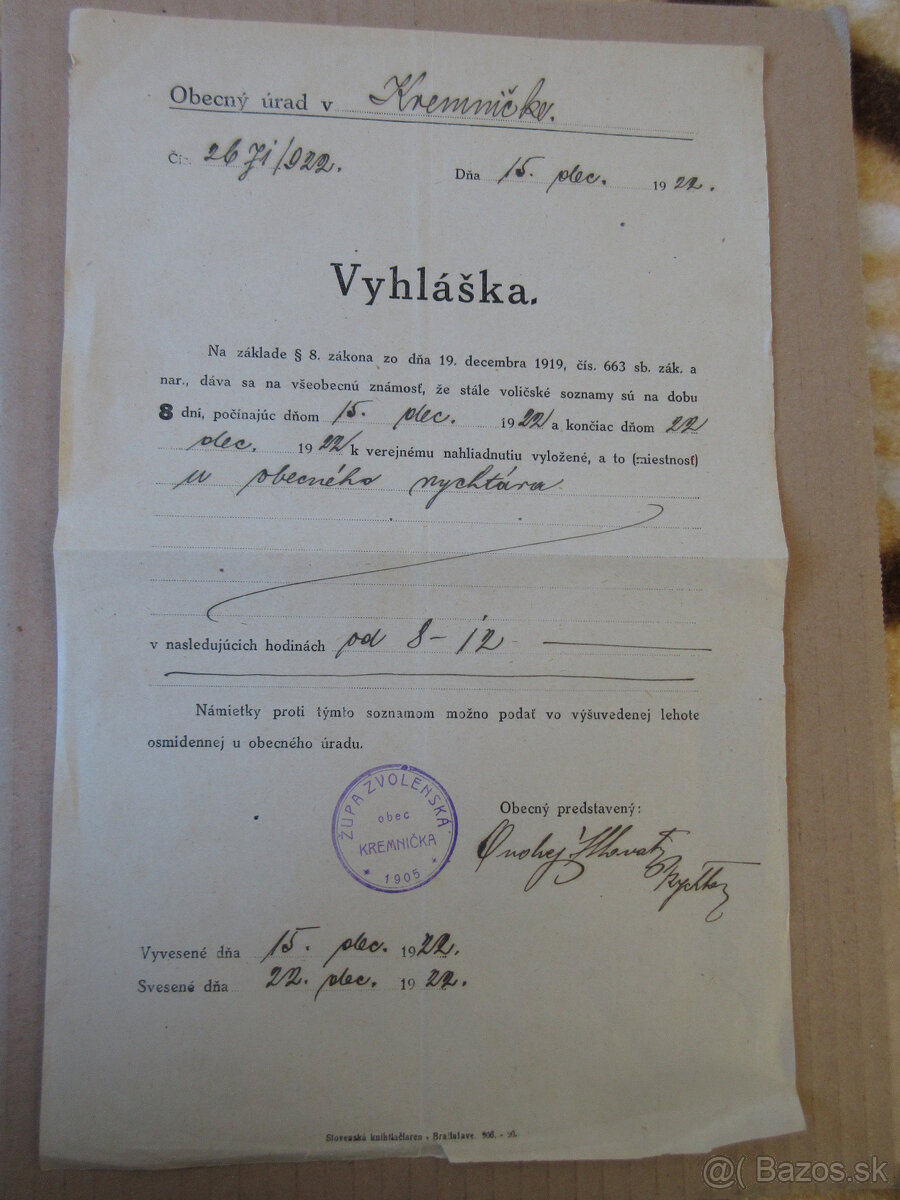 Obecný úrad v Kremničke.
Čís. 26 /922.
Dňa 15. dec. 1922.
Vyhláška.
Na základe § 8. zákona zo dňa 19. decembra 1919, čís. 663 sb. zák. a
nar., dáva sa na všeobecnú známosť, že stále voličské soznamy sú na dobu
8 dní, počínajúc dňom 15. dec. 1922 a končiac dňom 22
dec. 1922 k verejnému nahliadnutiu vyložené, a to (miestnosť)
u obecného rychtára
v nasledujúcich hodinách od 8 – 12
Námietky proti týmto soznamom možno podať vo výšuvedenej lehote
osmidennej u obecného úradu.
ŽUPA ZVOLENSKÁ
obec
KREMNIČKA
* 1905 *
Obecný predstavený:
Ondrej
Vyvesené dňa 15. dec. 1922.
Svesené dňa 22. dec. 1922.
Slovenská kníhtlačiareň
@( Bazos.sk